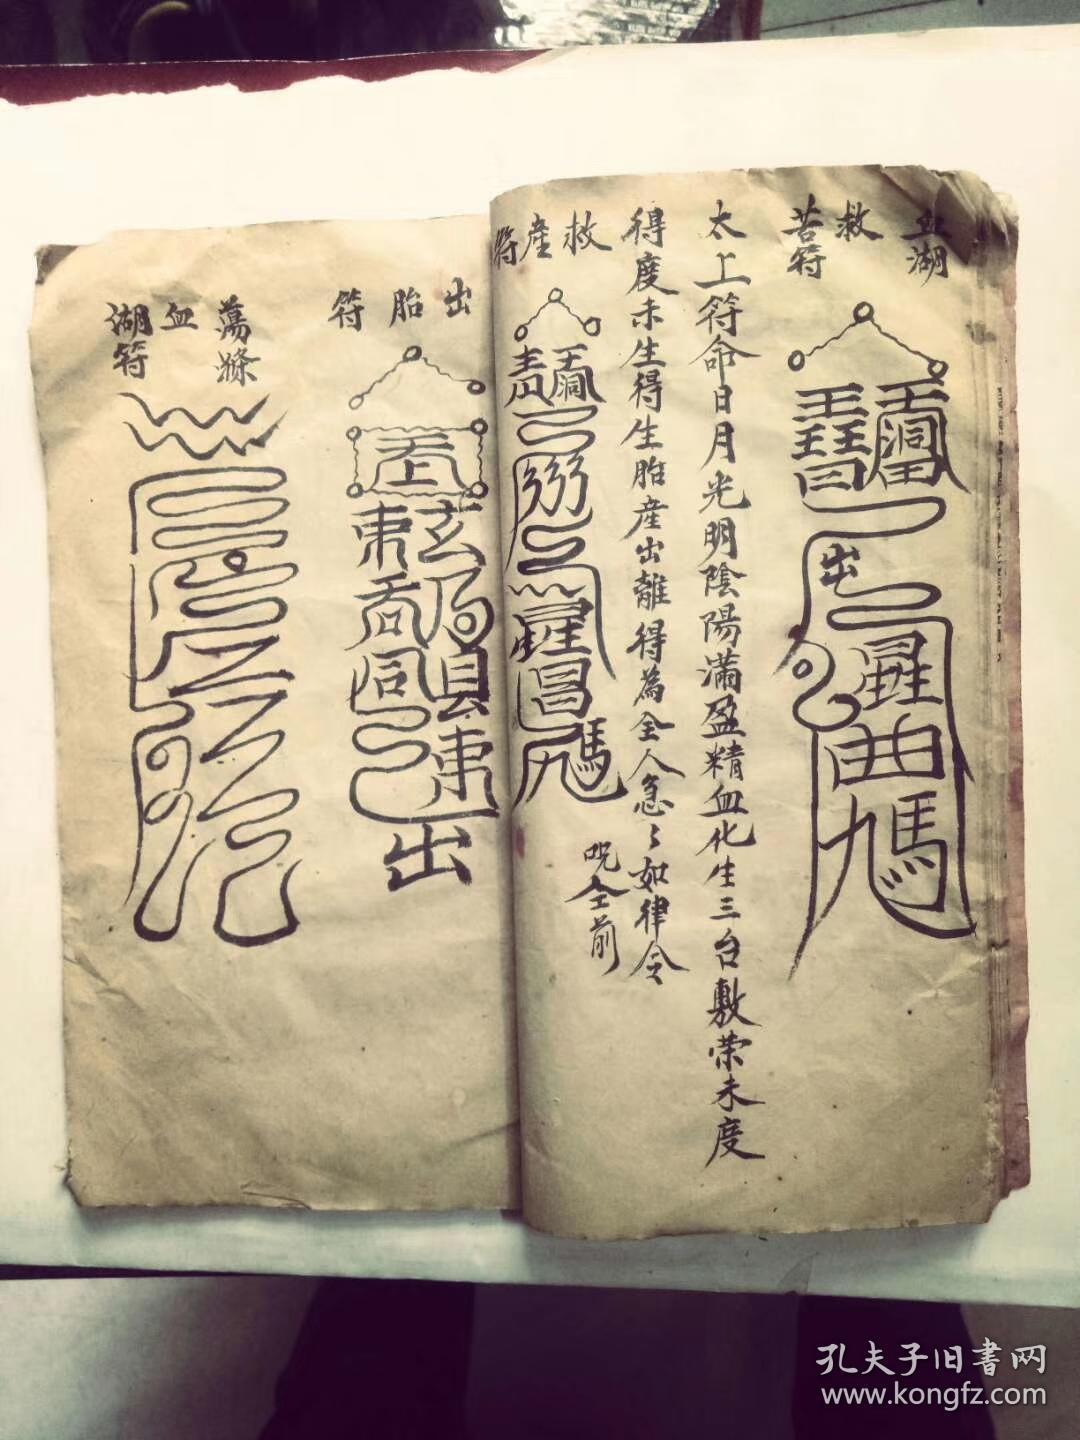 血湖
救苦符
出
太上符命日月光明陰陽滿盈精血化生三台敷荣未度
得度未生得生胎產出離得為全人急々如律令
救產符
咒仝前
出胎符
出
蕩滌
血湖符
孔夫子旧書网
www.kongfz.com